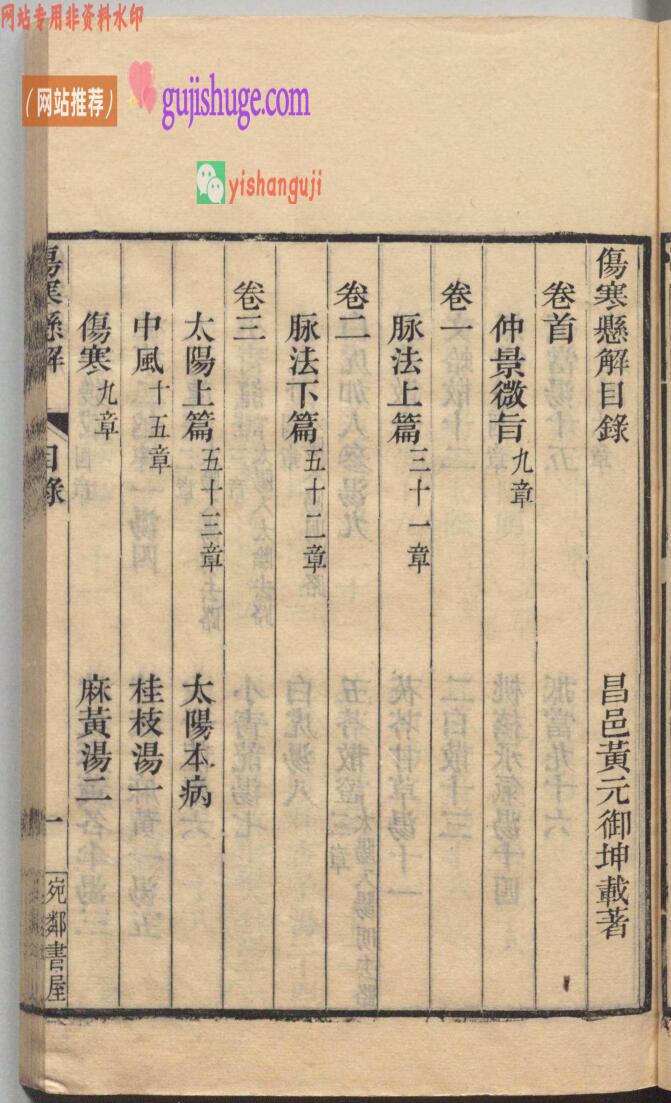 网站专用非资料水印
（网站推荐）
gujishuge.com
yishanguji
傷寒懸解目錄 昌邑黃元御坤載著
卷首
仲景微旨九章
卷一
脉法上篇三十一章
卷二
脉法下篇五十二章
卷三
太陽上篇五十三章 太陽本病
中風十五章 桂枝湯一
傷寒九章 麻黃湯二
傷寒懸解 目錄 一 宛鄰書屋